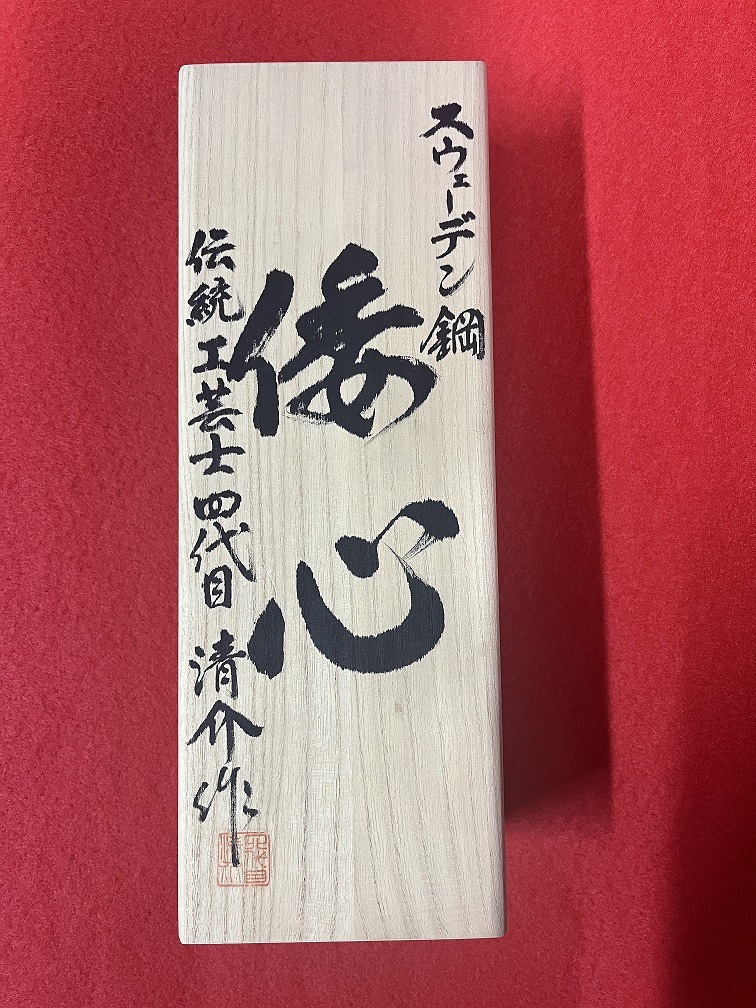 スウェーデン鋼
倭心
伝統工芸士四代目清介作